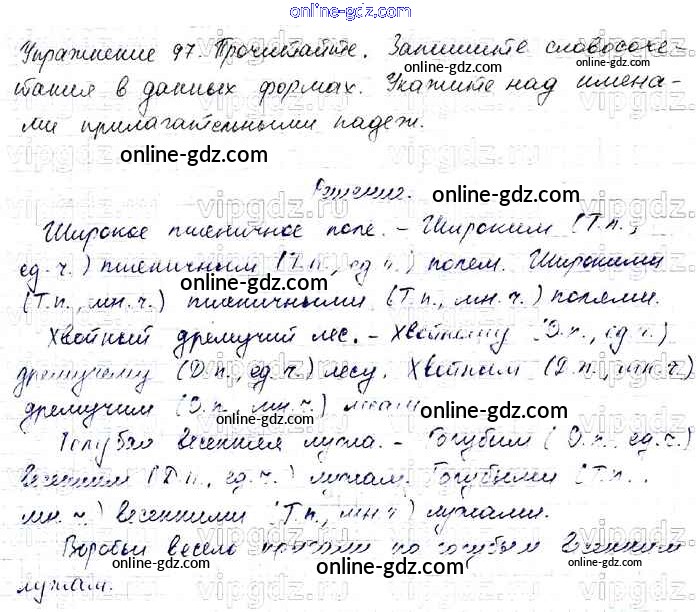 online-gdz.com
Упражнение 97. Прочитайте. Запишите словосоче-
тания в данных формах. Укажите над имена-
ми прилагательными падеж.
online-gdz.com
Решение.
online-gdz.com
Широкое пшеничное поле. - Широким (Т.п.,
ед.ч.) пшеничным (Т.п., ед.ч.) полем. Широкими
online-gdz.com
(Т.п., мн.ч.) пшеничными (Т.п., мн.ч.) полями.
Хвойный дремучий лес. - Хвойному (Д.п., ед.ч.)
online-gdz.com
дремучему (Д.п., ед.ч.) лесу. Хвойным (Д.п., мн.ч.)
дремучим (Д.п., мн.ч.) лесам
online-gdz.com
весенняя лужа. - Голубым (Д.п., ед.ч.)
весенним (Д.п., ед.ч.) лужам. Голубыми (Т.п.
online-gdz.com
мн.ч.) весенними (Т.п., мн.ч) лужами.
online-gdz.com
Воробьи весело по голубым весенним
лужам.
online-gdz.com